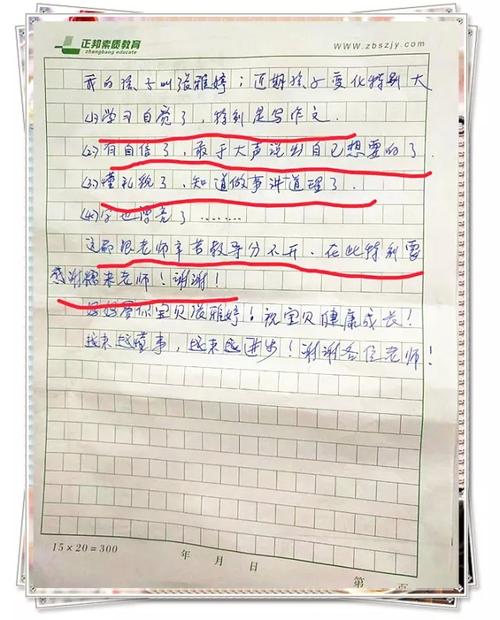 正邦素质教育
zhengbang educate
www.zbszjy.com
我的孩子叫张雅婷；近期孩子变化特别大
(1)学习自觉了，特别是写作文.
(2)有自信了，敢于大声说出自己想要的了.
(3)懂礼貌了，知道做事讲道理了.
(4)字也漂亮了........
这都跟老师辛苦教导分不开.在此特别要
感谢 老师！谢谢！
妈妈爱你宝贝张雅婷！祝宝贝健康成长！
越来越懂事，越来越进步！谢谢各位老师！
15×20=300
年 月 日
第 页